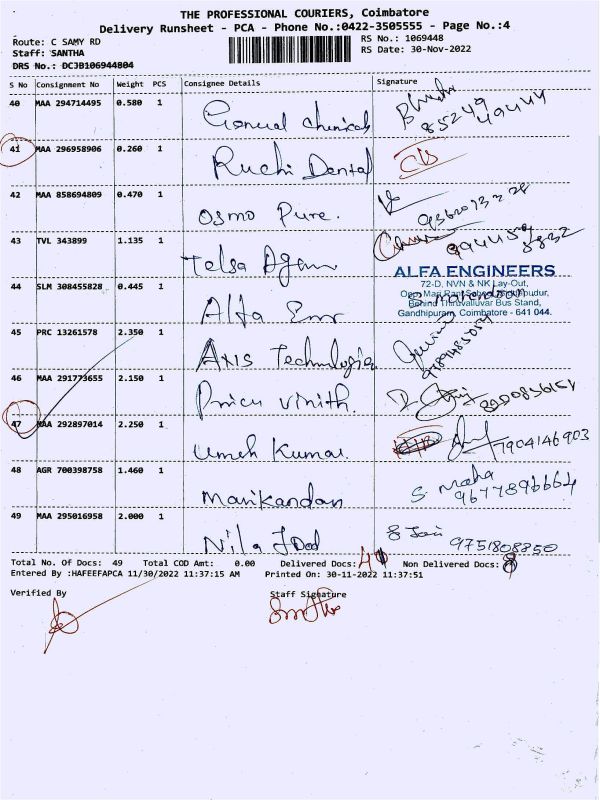 THE PROFESSIONAL COURIERS, Coimbatore
Delivery Runsheet - PCA - Phone No.:0422-3505555 - Page No.:4
Route: C SAMY RD
RS No.: 1069448
Staff: SANTHA
RS Date: 30-Nov-2022
DRS No.: DCJB106944804
S No Consignment No Weight PCS Consignee Details Signature
40 MAA 294714495 0.580 1 Genual chemicals 85249 49444
41 MAA 296958906 0.260 1 Ruchi Dental
42 MAA 858694809 0.470 1 Osmo Pure.
43 TVL 343899 1.135 1 Telsa Agam
ALFA ENGINEERS
72-D, NVN & NK Lay-Out,
Behind Thiruvalluvar Bus Stand,
Gandhipuram, Coimbatore - 641 044.
44 SLM 308455828 0.445 1 Alfa Enr
45 PRC 13261578 2.350 1 Axis Technologia
46 MAA 291773655 2.150 1 Pricu vinith.
47 MAA 292897014 2.250 1 Umeh Kumar 7904146903
48 AGR 700398758 1.460 1 Manikandan S. Maha 9677896664
49 MAA 295016958 2.000 1 Nila Food 8 Jain 9751808850
Total No. Of Docs: 49 Total COD Amt: 0.00 Delivered Docs: Non Delivered Docs:
Entered By :HAFEEFAPCA 11/30/2022 11:37:15 AM Printed On: 30-11-2022 11:37:51
Verified By Staff Signature